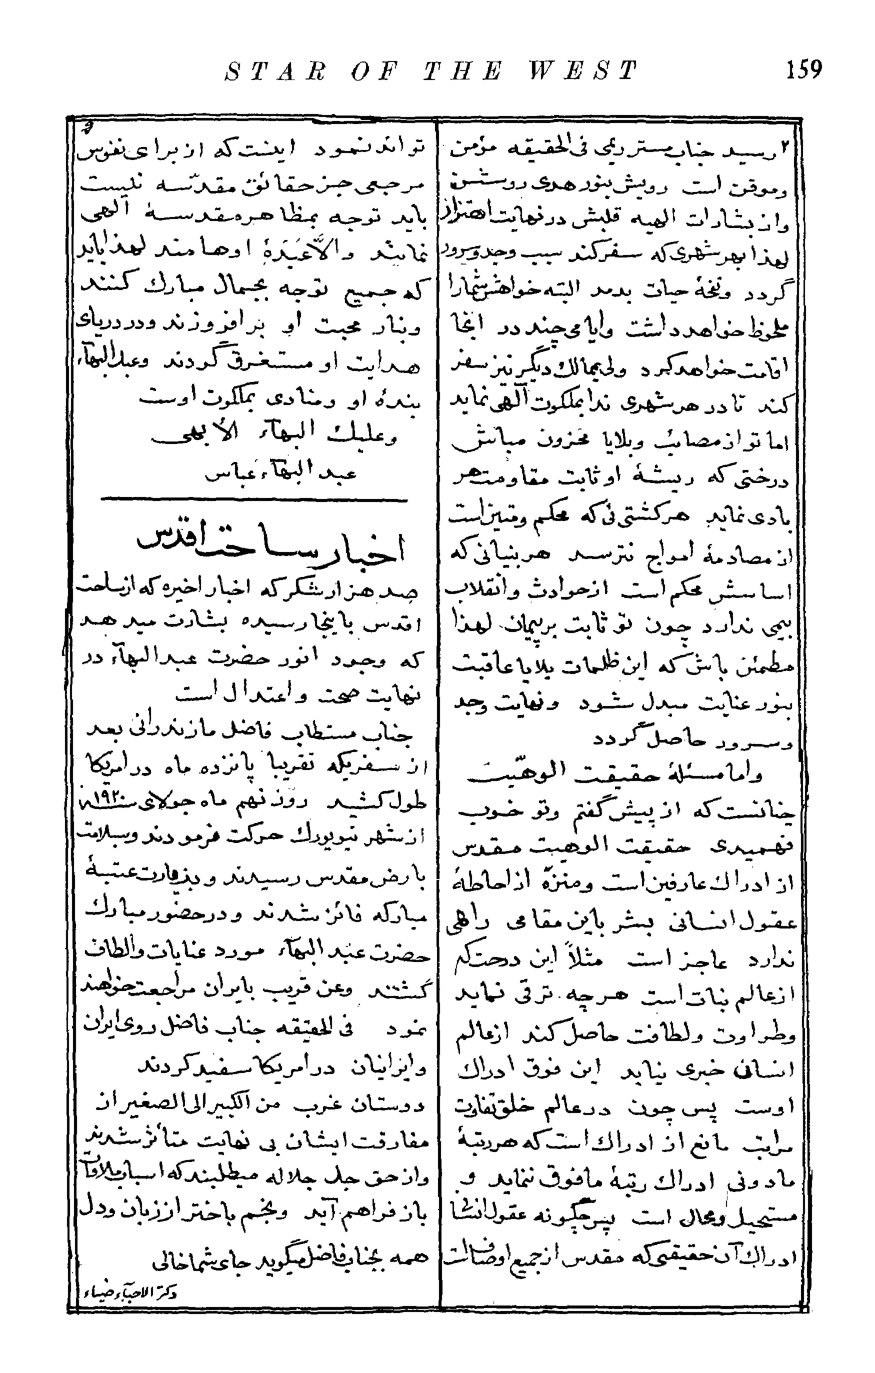 STAR OF THE WEST
159
۲
رسید جناب مستر ریمی فی الحقیقه مؤمن
وموقن است رویش بنور هدی روشن
واز بشارات الهیه قلبش در نهایت اهتزاز
لهذا بهر شهری که سفر کند سبب وجد و سرور
گردد ونفخهٔ حیات بدمد البته خواهش شما را
ملحوظ خواهد داشت وایامی چند در انجا
اقامت خواهد کرد ولی بممالک دیگر نیز سفر
کند تا در هر شهری ندا بملکوت آلهی نماید
اما تو از مصائب وبلایا محزون مباش
درختی که ریشهٔ او ثابت مقاومت هر
بادی نماید هر کشتی ئی که محکم ومتین است
از مصادمهٔ امواج نترسد هر بنیانی که
اساسش محکم است از حوادث وانقلاب
بیمی ندارد چون تو ثابت بر پیمان لهذا
مطمئن باش که این ظلمات بلایا عاقبت
بنور عنایت مبدل شود ونهایت وجد
وسرور حاصل گردد
واما مسئلهٔ حقیقت الوهیت
چنانست که از پیش گفتم وتو خوب
فهمیدی حقیقت الوهیت مقدس
از ادراک عارفین است ومنزّه از احاطهٔ
عقول انسانی بشر باین مقامی راهی
ندارد عاجز است مثلاً این درخت که
از عالم نبات است هر چه ترقی نماید
وطراوت ولطافت حاصل کند از عالم
انسان خبری نیابد این فوق ادراک
اوست پس چون در عالم خلق تفاوت
مراتب مانع از ادراک است که هر رتبهٔ
مادونی ادراک رتبهٔ مافوق ننماید و
مستحیل ومحال است پس چگونه عقول انسانی
ادراک آن حقیقتی که مقدس از جمیع اوصاف است
تواند نمود اینست که از برای نفوس
مرجعی جز حقائق مقدّسه نیست
باید توجه بمظاهر مقدسهٔ آلهی
نمایند والا عَبَدَهٔ اوهامند لهذا باید
که جمیع توجه بجمال مبارک کنند
وبنار محبت او بر افروزند ودر دریای
هدایت او مستغرق گردند وعبدالبهآء
بندهٔ او ومنادی بملکوت اوست
وعلیک البهآء الأبهی
عبد البهآء عباس
اخبار ساحت اقدس
صد هزار شکر که اخبار اخیره که از ساحت
اقدس باینجا رسیده بشارت میدهد
که وجود انور حضرت عبد البهآء در
نهایت صحت واعتدال است
جناب مستطاب فاضل مازندرانی بعد
از سفریکه تقریبا پانزده ماه در امریکا
طول کشید روز نهم ماه جولای ۱۹۲۰
از شهر نیویورک حرکت فرمودند وبسلامت
بارض مقدس رسیدند وبزیارت عتبهٔ
مبارکه فائز شدند ودر حضور مبارک
حضرت عبد البهآء مورد عنایات والطاف
گشتند وعن قریب بایران مراجعت خواهند
نمود فی الحقیقه جناب فاضل روی ایران
وایرانیان در امریکا سفید کردند
دوستان غرب من الکبیر الی الصغیر از
مفارقت ایشان بی نهایت متأثر شدند
واز حق جل جلاله میطلبند که اسباب ملاقات
باز فراهم آید ونجم باختر از زبان ودل
همه بجناب فاضل میگوید جای شما خالی